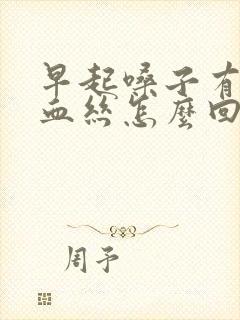 早起嗓子有
血丝怎麼回
周予